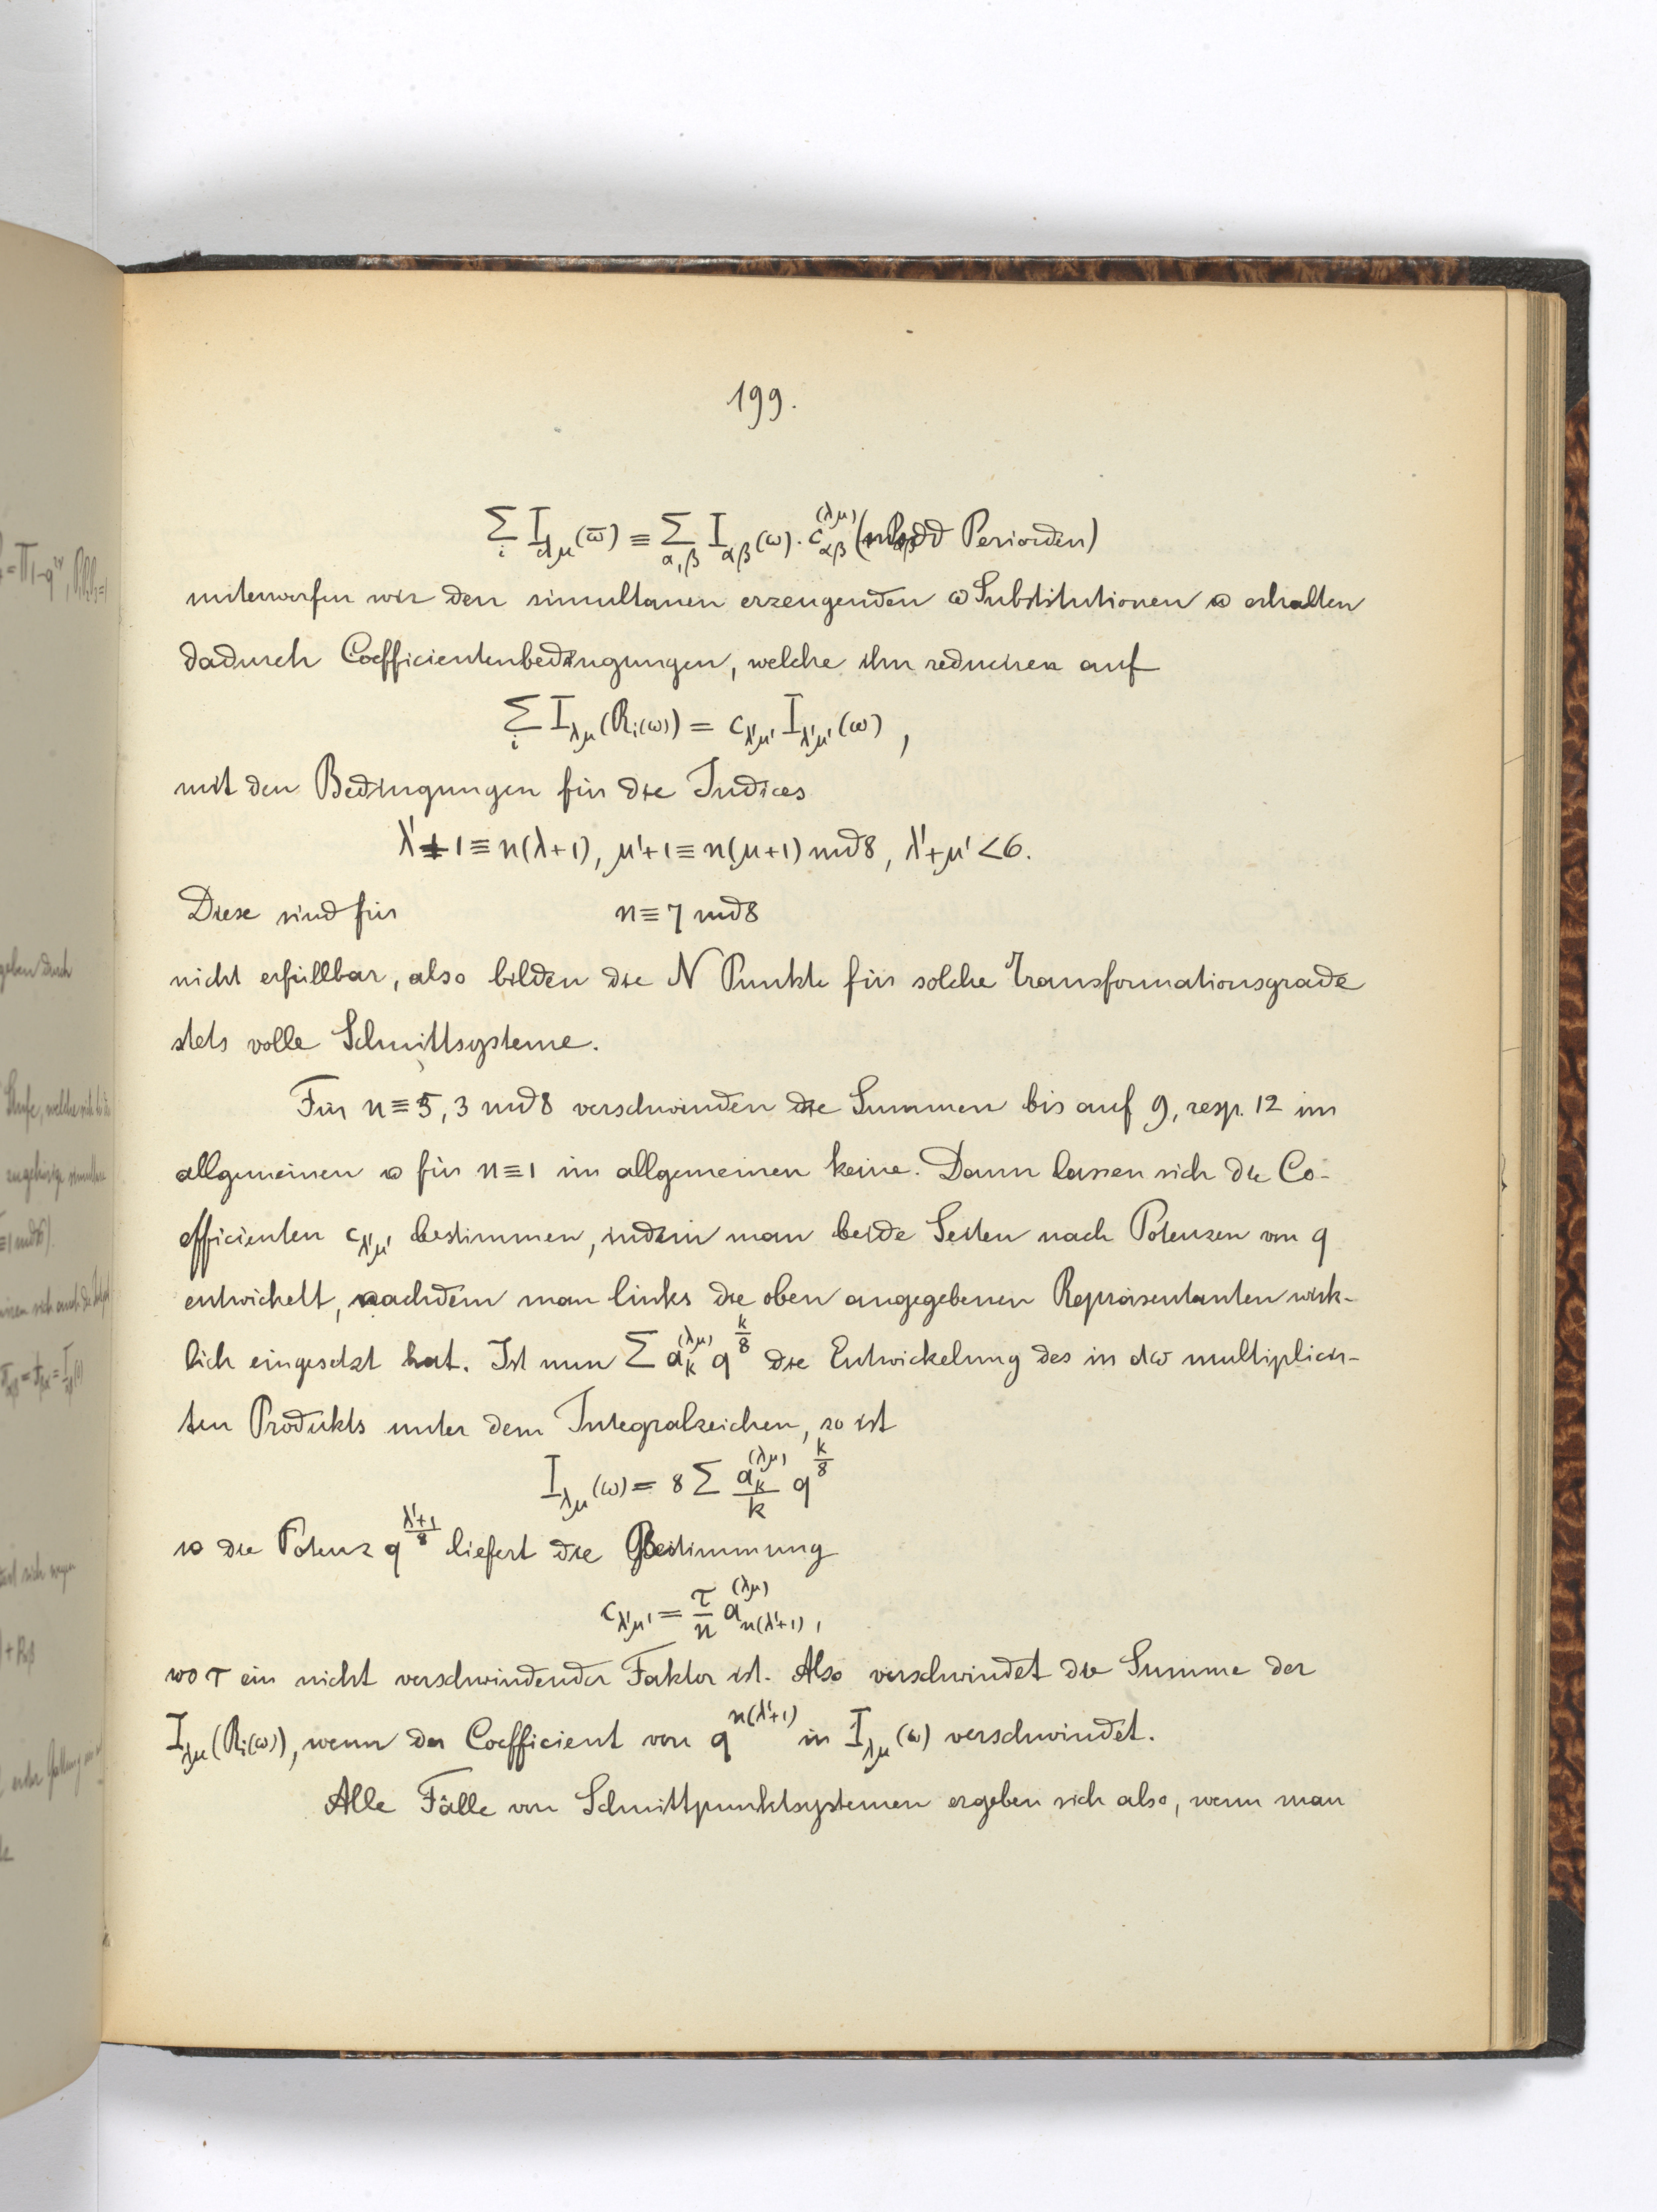 199.
∑_i I_{λμ}(ω̄) ≡ ∑_{α,β} I_{αβ}(ω). c_{αβ}^{(λμ)} (mod Perioden)
unterwerfen wir den simultanen erzeugenden ω Substitutionen u erhalten
dadurch Coefficientenbedingungen, welche ihn reduciren auf
∑_i I_{λμ}(R_i(ω)) = c_{λ'μ'} I_{λ'μ'}(ω),
mit den Bedingungen für die Indices
λ'+1 ≡ n(λ+1), μ'+1 ≡ n(μ+1) md 8, λ'+μ' < 6.
Diese sind für n ≡ 7 md 8
nicht erfüllbar, also bilden die N Punkte für solche Transformationsgrade
stets volle Schnittsysteme.
Für n ≡ 5, 3 md 8 verschwinden die Summen bis auf 9, resp. 12 im
allgemeinen u für n ≡ 1 im allgemeinen keine. Dann lassen sich die Co-
efficienten c_{λ'μ'} bestimmen, indem man beide Seiten nach Potenzen von q
entwickelt, nachdem man links die oben angegebenen Repräsentanten wirk-
lich eingesetzt hat. Ist nun ∑ a_k^{(λμ)} q^{k/8} die Entwickelung des in dω multiplicir-
ten Produkts unter dem Integralzeichen, so ist
I_{λμ}(ω) = 8 ∑ a_k^{(λμ)}/k q^{k/8}
u die Potenz q^{(λ'+1)/8} liefert die Bestimmung
c_{λ'μ'} = τ/n a_{n(λ'+1)}^{(λμ)},
wo τ ein nicht verschwindender Faktor ist. Also verschwindet die Summe der
I_{λμ}(R_i(ω)), wenn der Coefficient von q^{n(λ'+1)} in I_{λμ}(ω) verschwindet.
Alle Fälle von Schnittpunktsystemen ergeben sich also, wenn man